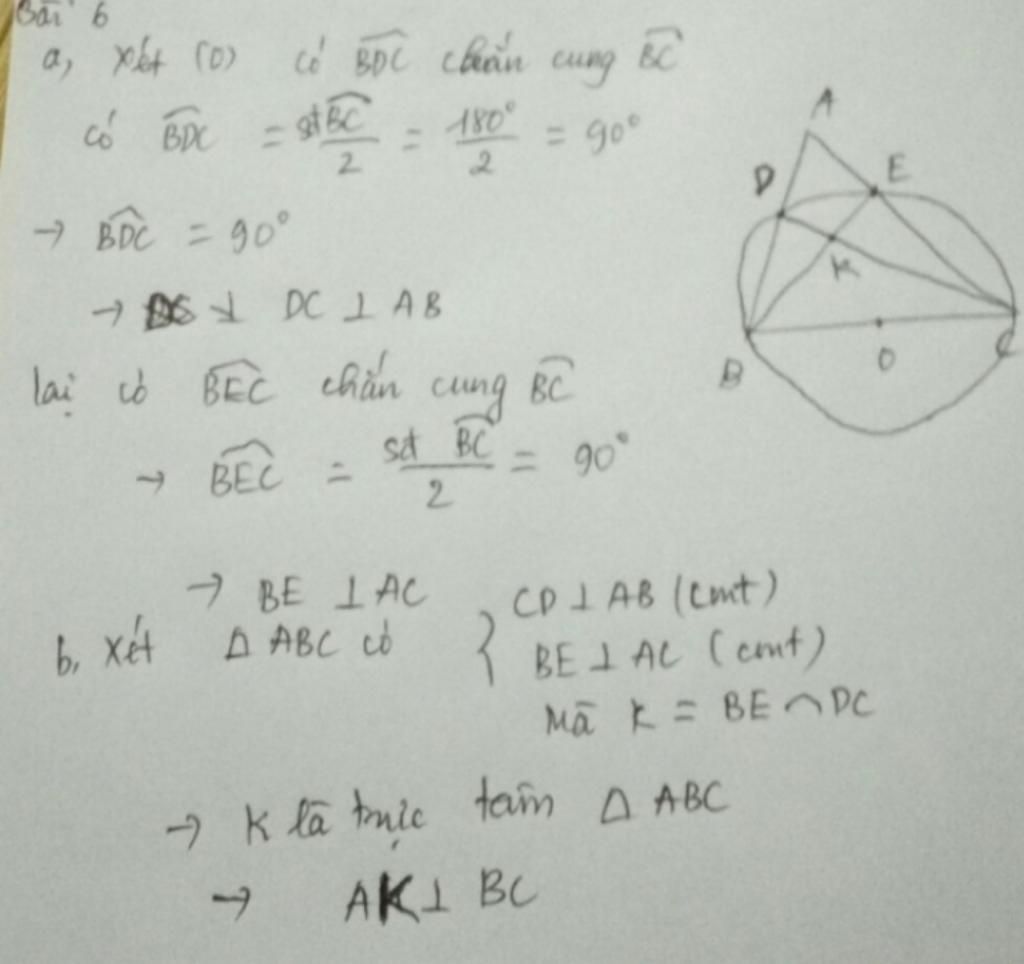 Bài 6
a, Xét (O) có BDC chắn cung BC
có BDC = sđBC/2 = 180°/2 = 90°
→ BDC = 90°
→ ⊥ DC ⊥ AB
lại có BEC chắn cung BC
→ BEC = sđ BC/2 = 90°
→ BE ⊥ AC
b, xét Δ ABC có { CD ⊥ AB (cmt)
BE ⊥ AC (cmt)
Mà K = BE ∩ DC
→ K là trực tâm Δ ABC
→ AK ⊥ BC
A
D
E
K
B
O
C